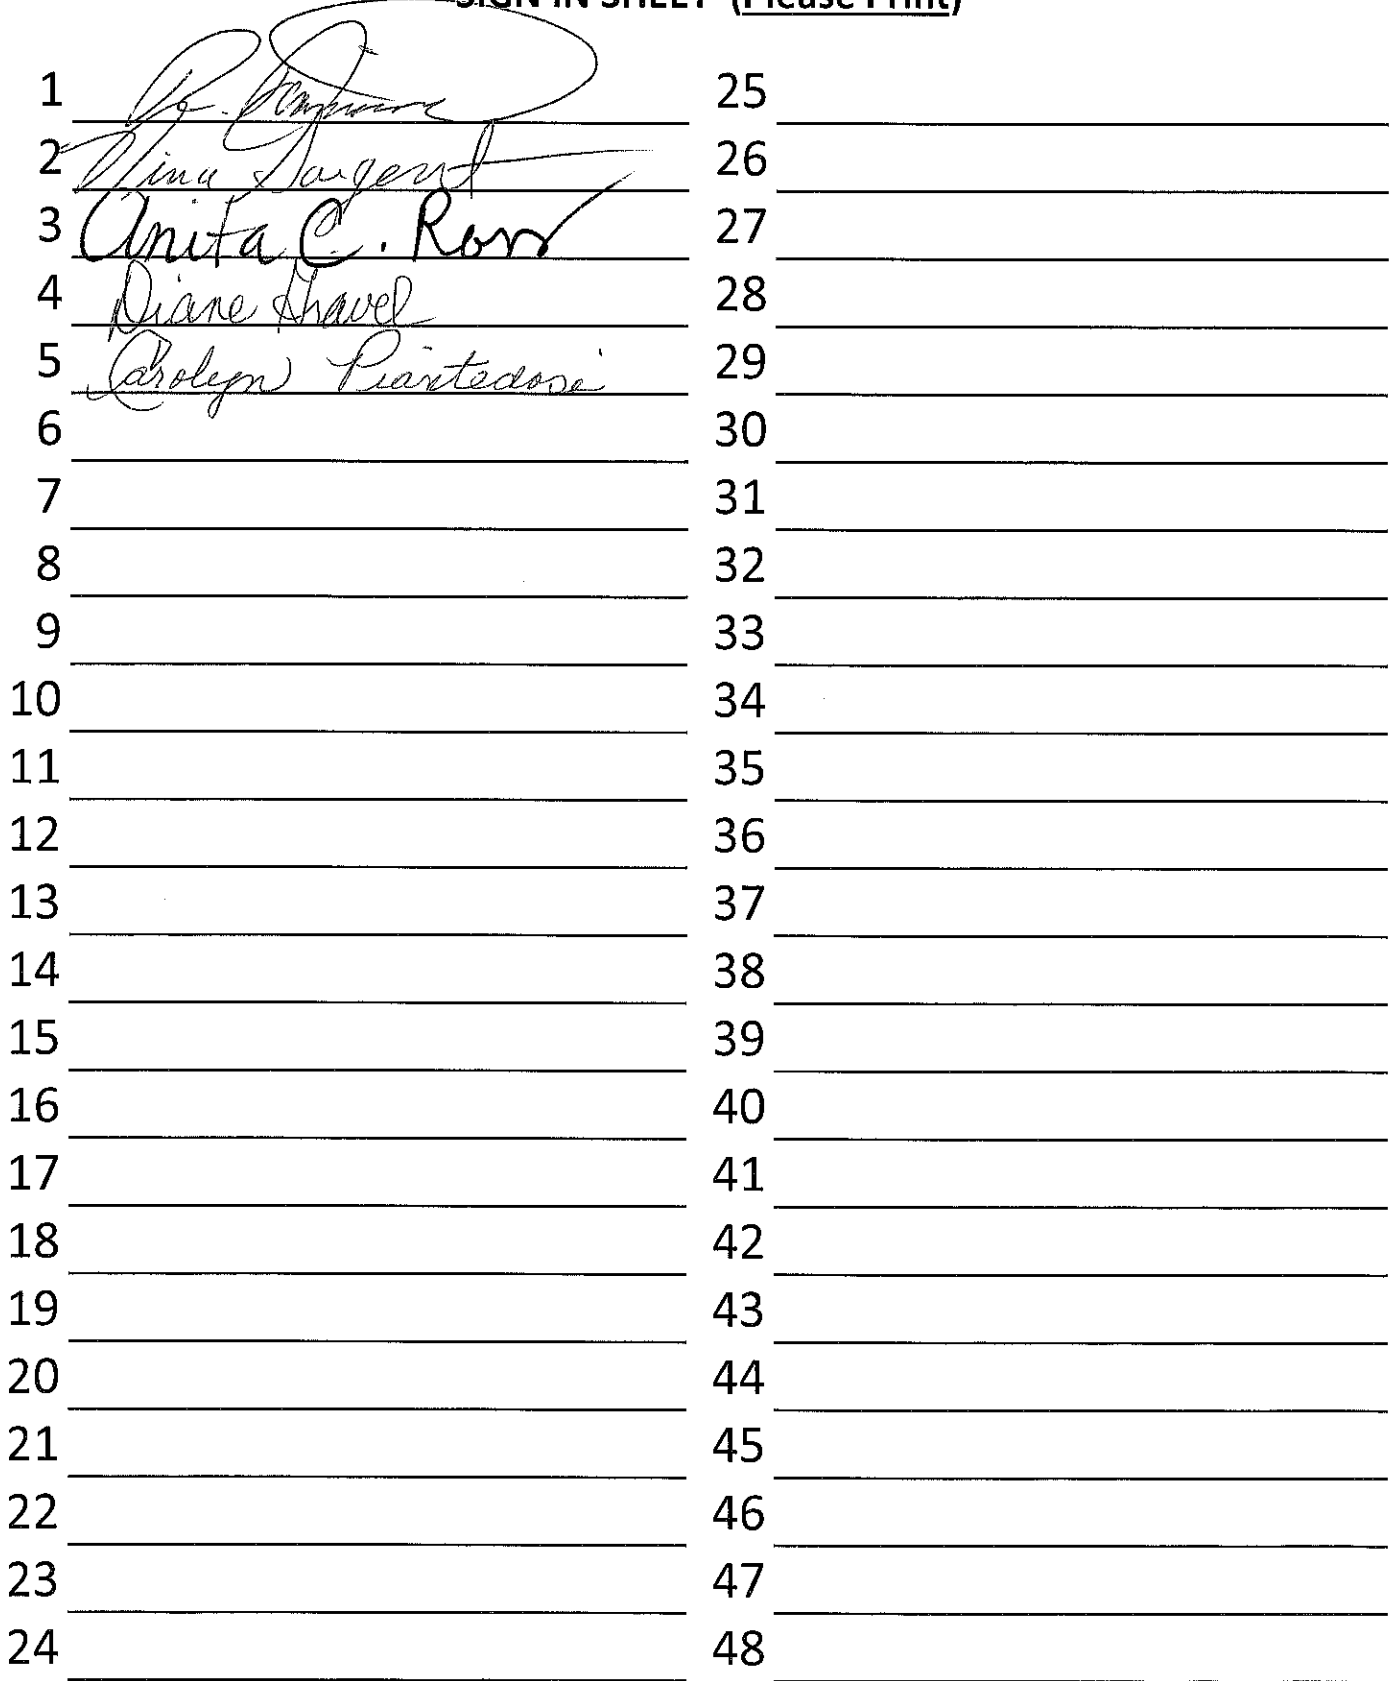 SIGN IN SHEET (Please Print)
1
2 Nina Sargent
3 Anita C. Ross
4 Diane Gravel
5 Carolyn Piantedosi
6
7
8
9
10
11
12
13
14
15
16
17
18
19
20
21
22
23
24
25
26
27
28
29
30
31
32
33
34
35
36
37
38
39
40
41
42
43
44
45
46
47
48